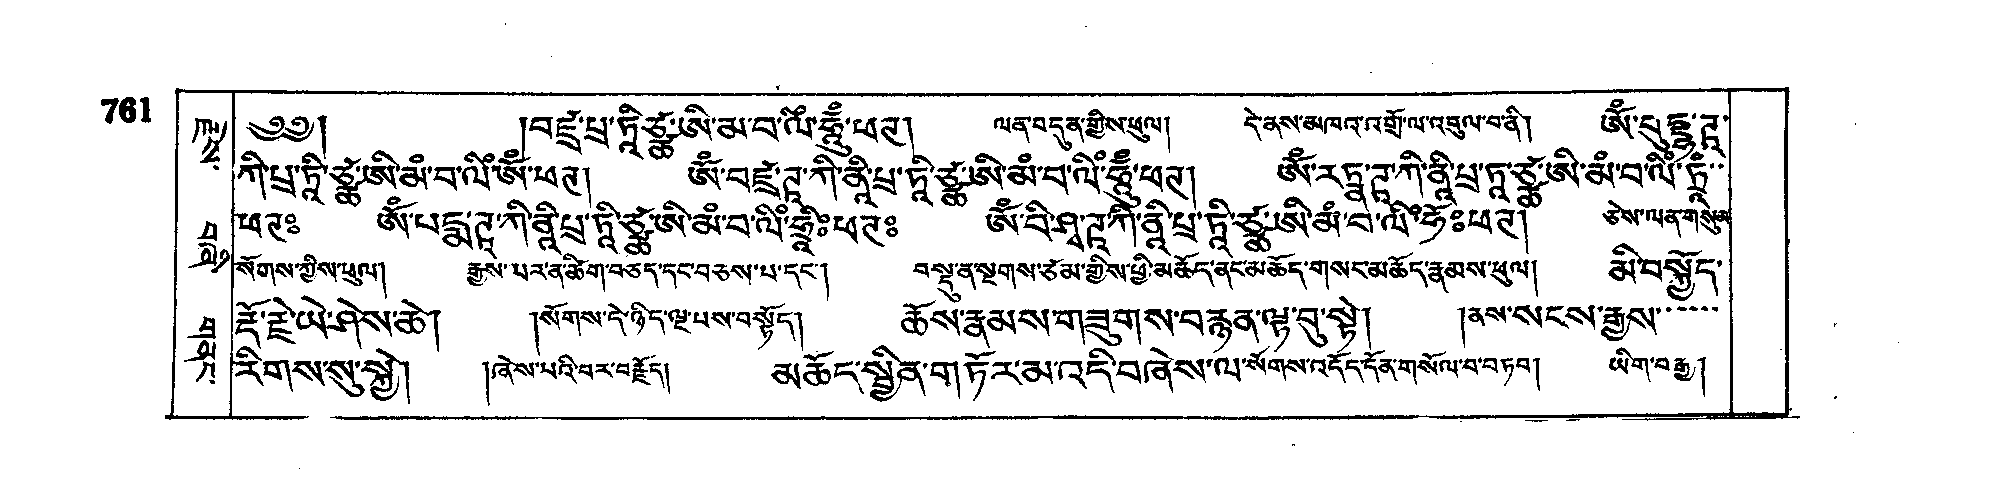 761
༄༅། །བཛྲོ་པྲ་ཏཱི་ཙྪོ་ཨི་མ་བ་ལིཾ་ཧཱུྃ་ཕཊ། ལན་བདུན་གྱིས་ཕུལ། དེ་ནས་མཁའ་འགྲོ་ལ་འབུལ་བ་ནི། ཨོཾ་བུདྡྷ་ཌཱ་
ཀི་པྲ་ཏཱི་ཙྪོ་ཨི་མཾ་བ་ལིཾ་ཨོཾ་ཕཊ། ཨོཾ་བཛྲ་ཌཱ་ཀི་ནཱི་པྲ་ཏཱི་ཙྪོ་ཨི་མཾ་བ་ལིཾ་ཧཱུྃ་ཕཊ། ཨོཾ་རཏྣ་ཌཱ་ཀི་ནཱི་པྲ་ཏཱི་ཙྪོ་ཨི་མཾ་བ་ལིཾ་ཏྲཾ་
ཕཊ༔ ཨོཾ་པདྨ་ཌཱ་ཀི་ནཱི་པྲ་ཏཱི་ཙྪོ་ཨི་མཾ་བ་ལིཾ་ཧྲཱི༔ཕཊ༔ ཨོཾ་བི་ཤྭ་ཌཱ་ཀི་ནཱི་པྲ་ཏཱི་ཙྪོ་ཨི་མཾ་བ་ལིཾ་ཧོ༔ཕཊ། ཅེས་ལན་གསུམ་
སོགས་ཀྱིས་ཕུལ། རྒྱས་པར་ན་ཚིག་བཅད་དང་བཅས་པ་དང་། བསྡུ་ན་སྔགས་ཙམ་གྱིས་ཕྱི་མཆོད་ནང་མཆོད་གསང་མཆོད་རྣམས་ཕུལ། མི་བསྐྱོད་
རྡོ་རྗེ་ཡེ་ཤེས་ཆེ། །སོགས་དེ་ཉིད་ལྔ་པས་བསྟོད། ཆོས་རྣམས་གཟུགས་བརྙན་ལྟ་བུ་སྟེ། །ནས་སངས་རྒྱས་
རིགས་སུ་སྐྱེ། །ཞེས་པའི་བར་བརྗོད། མཆོད་སྦྱིན་གཏོར་མ་འདི་བཞེས་ལ་སོགས་འདོད་དོན་གསོལ་བ་བཏབ། ཡིག་བརྒྱ།